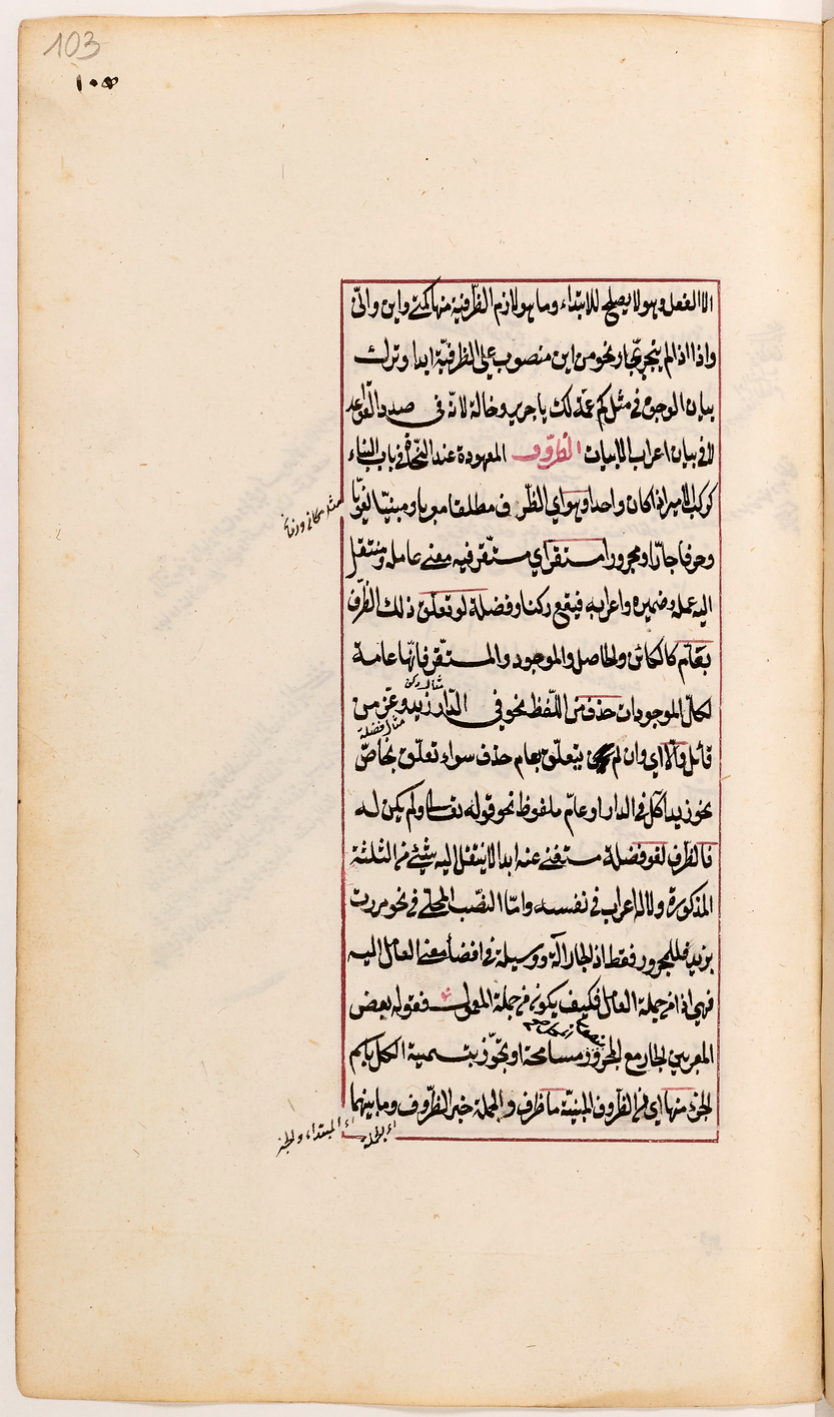 103
١٠٣
الا الفعل وهو لا يصلح للابتداء وما هو لازم الظرفية منها كمتى واين وانّى
واذا اذا لم ينجرّ بجار نحو من اين منصوب على الظرفيّة ابدا وترك
بيان الوجوه في مثل كم عمّة لك يا جرير وخالة لانّه فى صدد القواعد
لا في بيان اعراب الابيات الظروف المعهودة عند النحاة في باب البناء
كوكب الامير اذا كان واحدا وهو اي الظرف مطلقا معربا ومبنيّا لغويّا
مثله مكانى وزمانى
وحرفا جارّا ومجرورا مستقر اي مستقر فيه معنى عامله ومنتقل
اليه عمله وضميره واعرابه فيقع ركنا وفضلة لو تعلّق ذلك الظرف
بعامّ كالكائن والحاصل والموجود والمستقر فانّها عامة
لكلّ الموجودات حذف من اللّفظ نحو فى الدّار زيد وعزّ من
مثال ركن
مثال فضلة
قائل والّا اي وان لم يتعلّق بعام حذف سواء تعلّق بخاصّ
نحو زيد اكل في الدار او عامّ ملفوظ نحو قوله تعالى ولم يكن له
فالظرف لغو فضلة مستغنى عنه ابدا لا ينتقل اليه شيئ من الثلثة
المذكورة ولا له اعراب في نفسه وامّا النصب المحلّى في نحو مررت
بزيد فللمجرور فقط اذ الجار آلة ووسيلة في افضاء معنى العامل اليه
فهى اذا من جملة العامل فكيف يكون من جملة المعمول فقوله بعض
المعربين الجار مع المجرور مسامحة او تجوّز بتسمية الكل باسم
الجزء منها اي من الظروف المبنيّة ما ظرف والجملة خبر الظّروف وما بينهما
اى الجملة
اى المبتداء والخبر